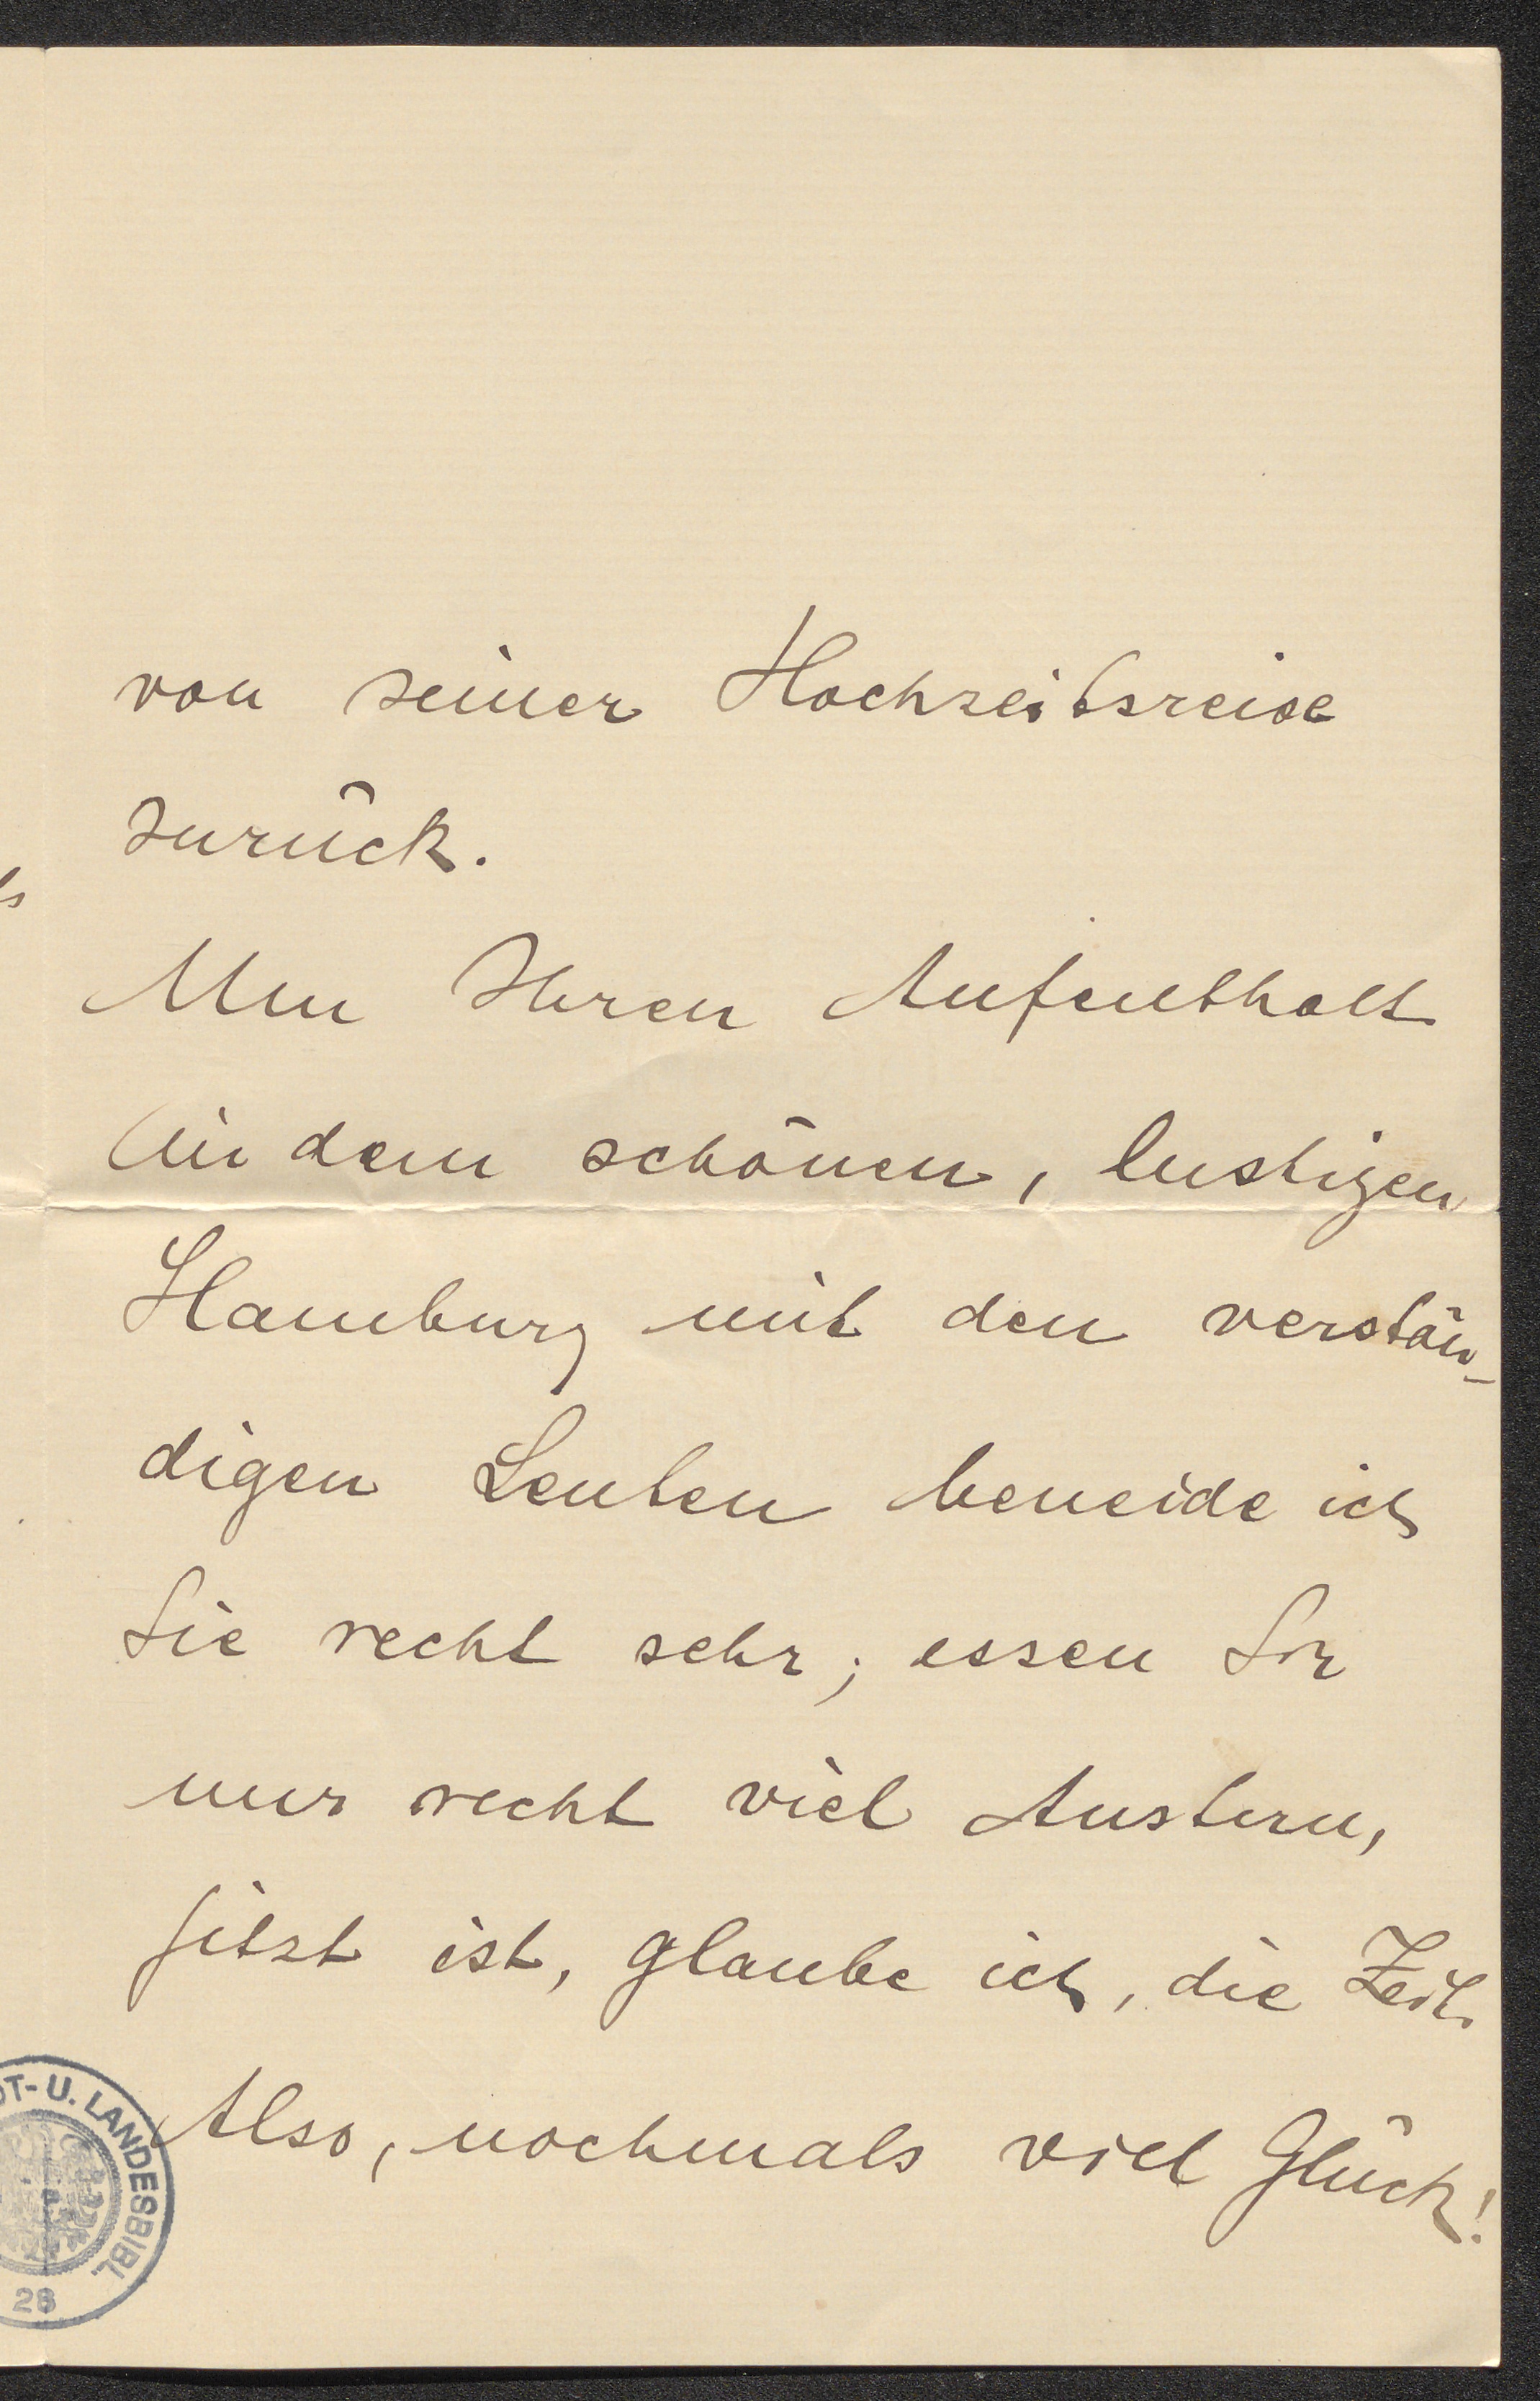 von seiner Hochzeitsreise
zurück.
Um Ihren Aufenthalt
in dem schönen, lustigen
Hamburg mit den verstän-
digen Leuten beneide ich
Sie recht sehr; essen Sie
nur recht viel Austern,
jetzt ist, glaube ich, die Zeit.
Also, nochmals viel Glück!
DT- U. LANDESBIBL
28